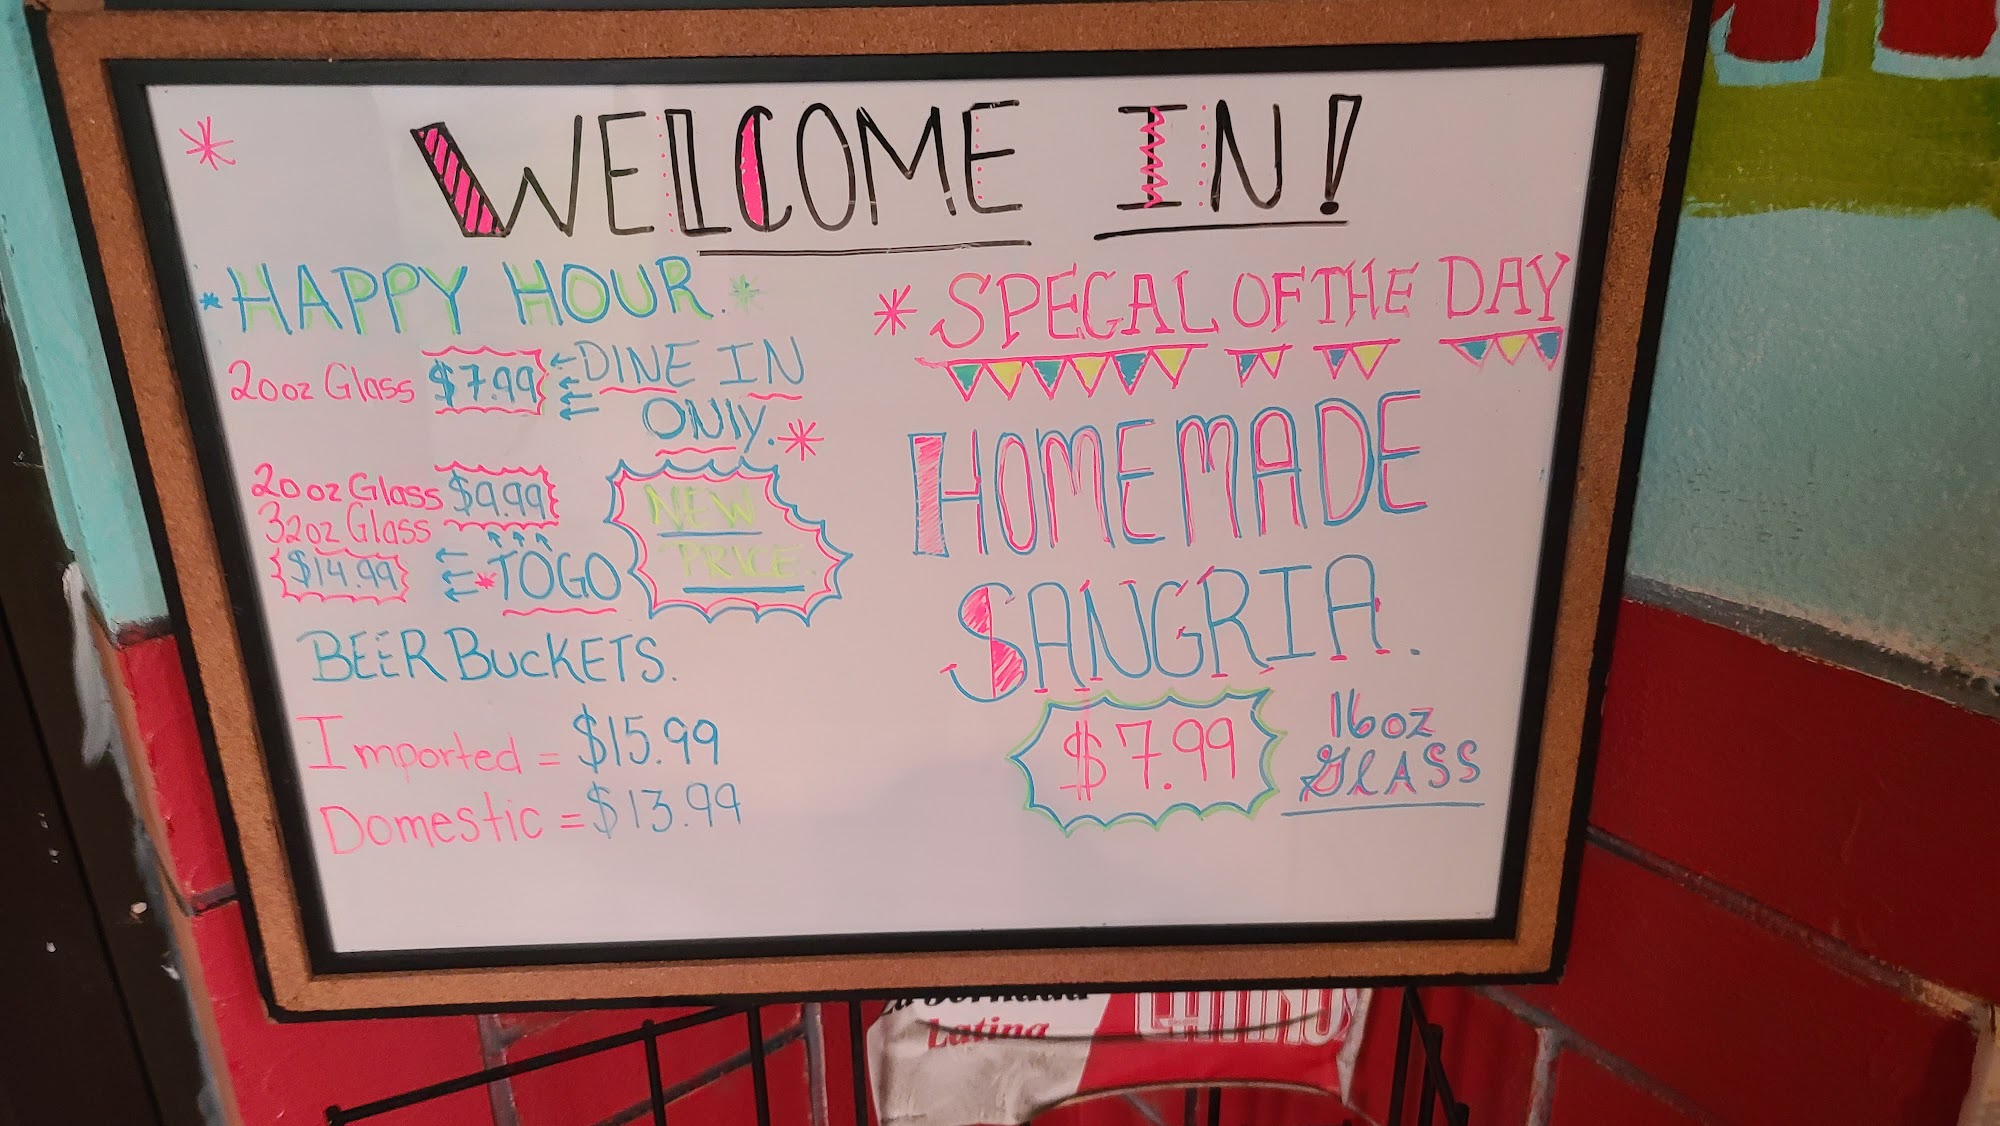 WELCOME IN!
HAPPY HOUR.
20oz Glass $7.99 DINE IN
ONLY.
20oz Glass $9.99
32oz Glass
$14.99 TOGO
NEW
PRICE.
BEER BUCKETS.
Imported = $15.99
Domestic = $13.99
SPECAL OF THE DAY
HOMEMADE
SANGRIA.
$7.99 16oz
GLASS
La Jornada
Latina